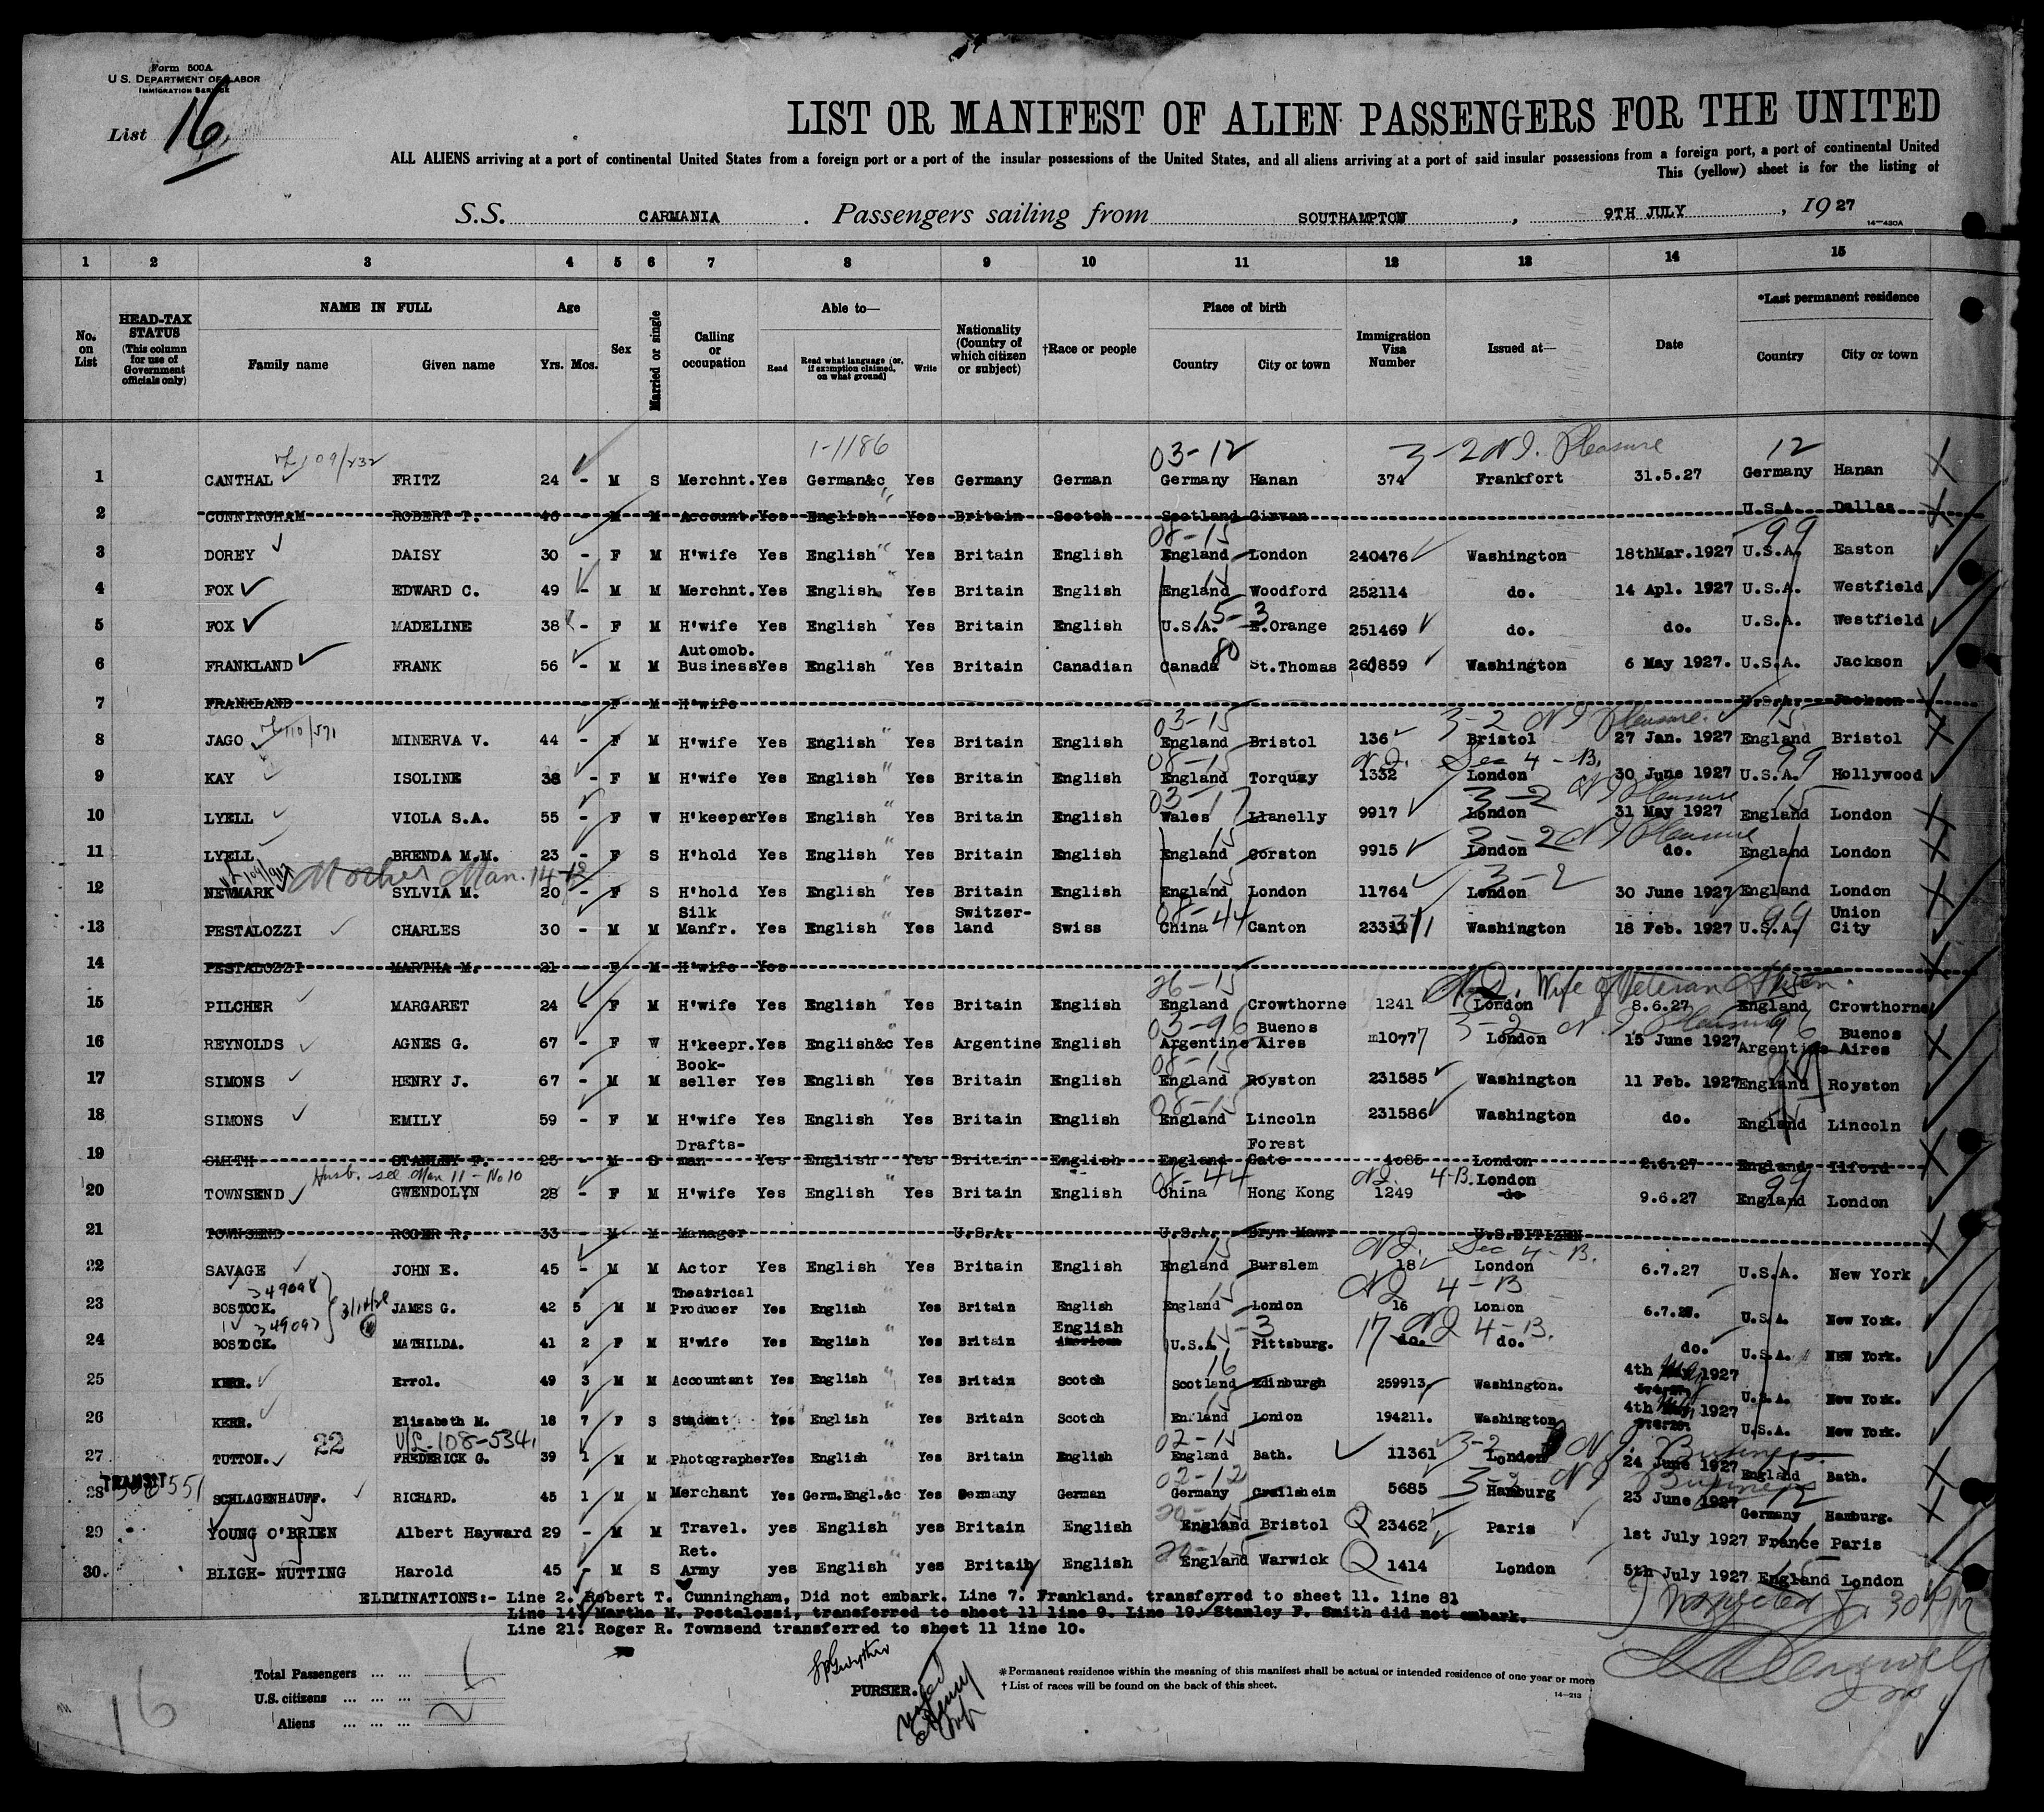 Form 500A
U.S. DEPARTMENT OF LABOR
IMMIGRATION SERVICE
List 16
LIST OR MANIFEST OF ALIEN PASSENGERS FOR THE UNITED
ALL ALIENS arriving at a port of continental United States from a foreign port or a port of the insular possessions of the United States, and all aliens arriving at a port of said insular possessions from a foreign port, a port of continental United
This (yellow) sheet is for the listing of
S.S. CARMANIA. Passengers sailing from SOUTHAMPTON, 9TH JULY, 1927
14-430A
1 2 3 4 5 6 7 8 9 10 11 12 13 14 15
No. on List
HEAD-TAX STATUS (This column for use of Government officials only)
NAME IN FULL Family name Given name
Age Yrs. Mos.
Sex
Married or single
Calling or occupation
Able to— Read Read what language [or, if exemption claimed, on what ground] Write
Nationality (Country of which citizen or subject)
†Race or people
Place of birth Country City or town
Immigration Visa Number
Issued at—
Date
*Last permanent residence Country City or town
1-1186 03-12 3-2 N.I. Pleasure 12
1 CANTHAL FRITZ 24 - M S Merchnt. Yes German&c Yes Germany German Germany Hanan 374 Frankfort 31.5.27 Germany Hanan
2 CUNNINGHAM ROBERT T. 46 - M M Account. Yes English Yes Britain Scotch Scotland Girvan U.S.A. Dallas
08-15 99
3 DOREY DAISY 30 - F M H'wife Yes English " Yes Britain English England London 240476 Washington 18thMar.1927 U.S.A. Easton
4 FOX EDWARD C. 49 - M M Merchnt. Yes English Yes Britain English England Woodford 252114 do. 14 Apl. 1927 U.S.A. Westfield
15-3
5 FOX MADELINE 38 - F M H'wife Yes English Yes Britain English U.S.A. E.Orange 251469 do. do. U.S.A. Westfield
80
6 FRANKLAND FRANK 56 - M M Automob. Business Yes English " Yes Britain Canadian Canada St.Thomas 260859 Washington 6 May 1927. U.S.A. Jackson
7 FRANKLAND F M H'wife U.S.A. Jackson
03-15 3-2 N I Pleasure. 15
8 JAGO MINERVA V. 44 - F M H'wife Yes English " Yes Britain English England Bristol 136 Bristol 27 Jan. 1927 England Bristol
08-15 N.I. Sec 4-B. 99
9 KAY ISOLINE 38 - F M H'wife Yes English " Yes Britain English England Torquay 1332 London 30 June 1927 U.S.A. Hollywood
03-17 3-2 N I Pleasure 15
10 LYELL VIOLA S.A. 55 - F W H'keeper Yes English " Yes Britain English Wales Llanelly 9917 London 31 May 1927 England London
15 3-2 N I Pleasure
11 LYELL BRENDA M.M. 23 - F S H'hold Yes English " Yes Britain English England Gorston 9915 London do. England London
Mother Man. 14-12 15 3-2
12 NEWMARK SYLVIA M. 20 - F S H'hold Yes English " Yes Britain English England London 11764 London 30 June 1927 England London
08-44 99
13 PESTALOZZI CHARLES 30 - M M Silk Manfr. Yes English " Yes Switzer-land Swiss China Canton Washington 18 Feb. 1927 U.S.A. Union City
14 PESTALOZZI MARTHA M. 21 - F M H'wife Yes
26-15 N.Q. Wife of Veteran
15 PILCHER MARGARET 24 - F M H'wife Yes English " Yes Britain English England Crowthorne 1241 London 8.6.27 England Crowthorne
03-96 3-2 N.I Pleasure 96
16 REYNOLDS AGNES G. 67 - F W H'keepr. Yes English&c Yes Argentine English Argentine Buenos Aires m10777 London 15 June 1927 Argentine Buenos Aires
08-15 99
17 SIMONS HENRY J. 67 - M M Book-seller Yes English " Yes Britain English England Royston 231585 Washington 11 Feb. 1927 England Royston
08-15
18 SIMONS EMILY 59 - F M H'wife Yes English " Yes Britain English England Lincoln 231586 Washington do. England Lincoln
19 SMITH STANLEY F. 25 - M S Drafts-man Yes English Yes Britain English England Forest Gate 4085 London 2.6.27 England Ilford
Husb. see Man 11 - No 10 08-44 N.I. 4-B. 99
20 TOWNSEND GWENDOLYN 28 - F M H'wife Yes English " Yes Britain English China Hong Kong 1249 London do 9.6.27 England London
21 TOWNSEND ROGER R. 33 - M M Manager U.S.A. U.S.A. Bryn Mawr U.S.CITIZEN
15 N.I. Sec 4-B.
22 SAVAGE JOHN E. 45 - M M Actor Yes English Yes Britain English England Burslem 18 London 6.7.27 U.S.A. New York
349098 15 N I 4-B
23 BOSTOCK. JAMES G. 42 5 M M Theatrical Producer Yes English Yes Britain English England London 16 London 6.7.27. U.S.A. New York.
349097 15-3 17 N I 4-B.
24 BOSTOCK. MATHILDA. 41 2 F M H'wife Yes English " Yes Britain English American U.S.A. Pittsburg. do. do. do. U.S.A. NEW York.
16
25 KERR. Errol. 49 3 M M Accountant Yes English " Yes Britain Scotch Scotland Edinburgh 259913. Washington. 4th May 1927 U.S.A. New York.
15
26 KERR. Elizabeth M. 18 7 F S Student Yes English " Yes Britain Scotch England London 194211. Washington 4th 1927 U.S.A. New York.
22 V/L-108-534 02-15 3-2 N I Business
27 TUTTON. FREDERICK G. 39 1 M M Photographer Yes English " Yes Britain English England Bath. 11361 London 24 June 1927 England Bath.
TRANSIT 551 02-12 3-2 N I Business 12
28 SCHLAGENHAUFF. RICHARD. 45 1 M M Merchant Yes Germ.Engl.&c Yes Germany German Germany Crailsheim 5685 Hamburg 23 June 1927 Germany Hamburg.
20-15
29 YOUNG O'BRIEN Albert Hayward 29 - M M Travel. yes English " yes Britain English England Bristol Q 23462 Paris 1st July 1927 France Paris
20-15 15
30. BLIGH- NUTTING Harold 45 - M S Ret. Army yes English " yes Britain English England Warwick Q 1414 London 5th July 1927 England London
ELIMINATIONS:- Line 2. Robert T. Cunningham, Did not embark. Line 7. Frankland. transferred to sheet 11. line 81
Line 14. Martha M. Pestalozzi, transferred to sheet 11 line 9. Line 19. Stanley F. Smith did not embark.
Line 21. Roger R. Townsend transferred to sheet 11 line 10.
Inspected 30 PM
Total Passengers ... ...
U.S. citizens ... ... ...
Aliens ... ... ...
PURSER.
*Permanent residence within the meaning of this manifest shall be actual or intended residence of one year or more
† List of races will be found on the back of this sheet.
14-213
16